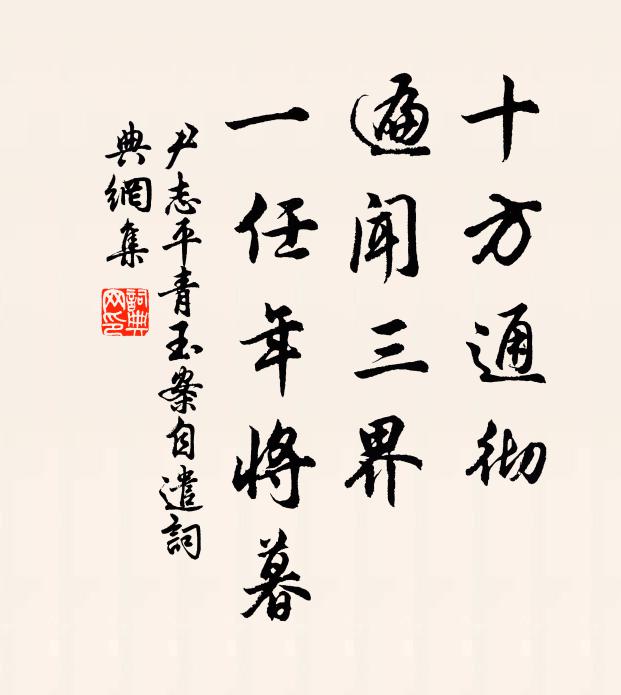 十方通彻
遍闻三界
一任年將暮
尹志平青玉案自遣詞
典網集
詞典
网印